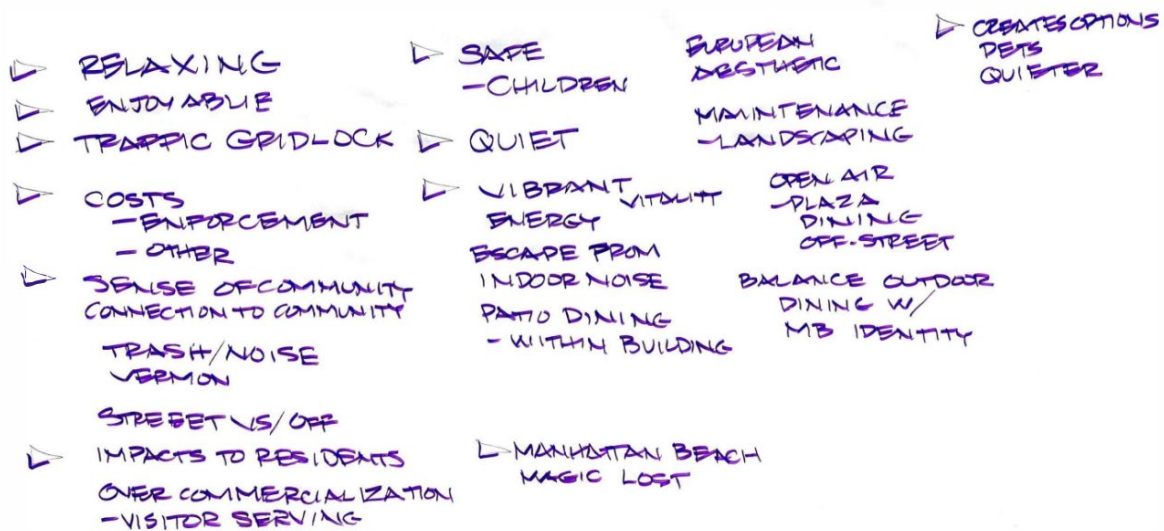 RELAXING
ENJOYABLIE
TRAFFIC GRIDLOCK
COSTS
- ENFORCEMENT
- OTHER
SENSE OF COMMUNITY
CONNECTION TO COMMUNITY
TRASH/NOISE
VERMON
STREEET VS/OFF
IMPACTS TO RESIDENTS
OVER COMMERCIALIZATION
- VISITOR SERVING
SAFE
- CHILDREN
QUIET
VIBRANT VITALITY
ENERGY
ESCAPE FROM
INDOOR NOISE
PATIO DINING
- WITHIN BUILDING
MANHATTAN BEACH
MAGIC LOST
EUROPEAN
AESTHETIC
MAINTENANCE
- LANDSCAPING
OPEN AIR
- PLAZA
DINING
OFF-STREET
BALANCE OUTDOOR
DINING W/
MB IDENTITY
CREATES OPTIONS
PETS
QUIETER